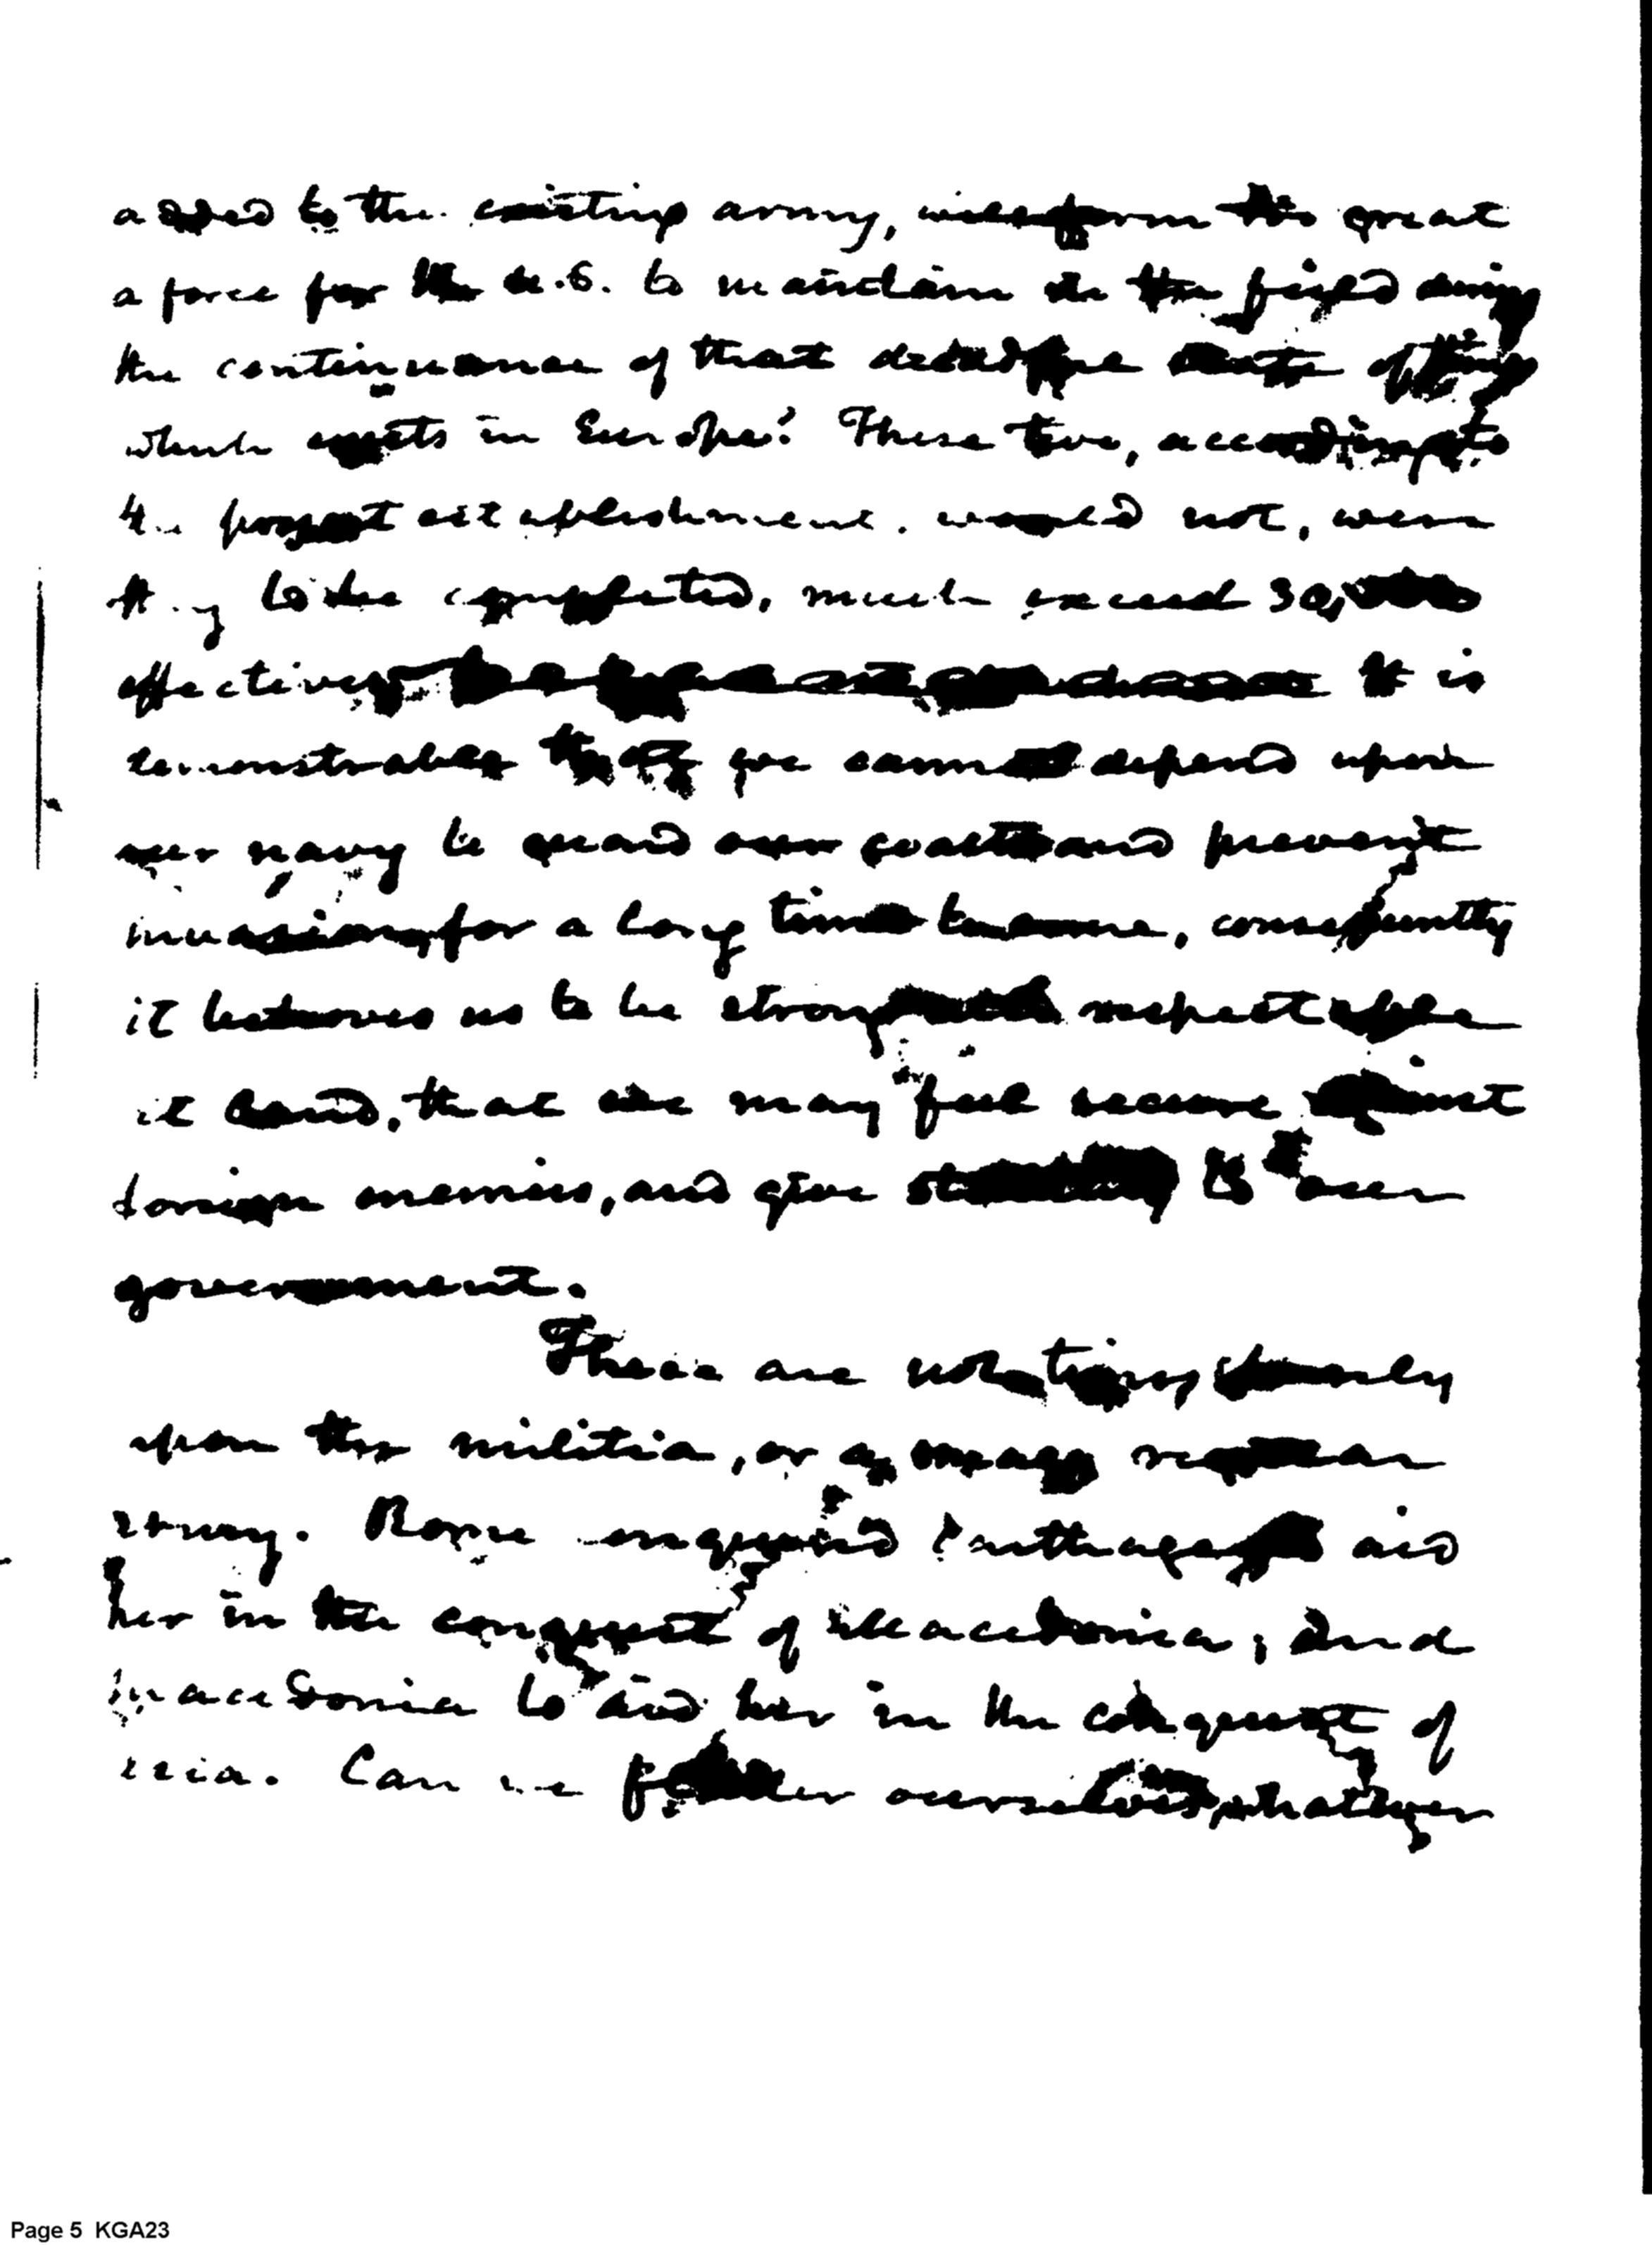 added to the existing army, will form too great
a force for the U.S. to maintain in the field during
the continuance of that state of things
which exists in Europe? These two, according to
the present establishment. would not, were
they to be completed, much exceed 30,000
effectives It is
demonstrable that we cannot depend upon
our navy to guard our coasts and prevent
invasions, for a long time to come, consequently
it behoves us to be strong and respectable
at land, that we may feel secure against
foreign enemies, and give stability to our
government.
There are not
upon the militia, or an regular
army. Rome required Carthage to aid
her in the conquest of Macedonia; and
Macedonia to aid her in the conquest of
Can we flatter ourselves, whatever
Page 5 KGA23